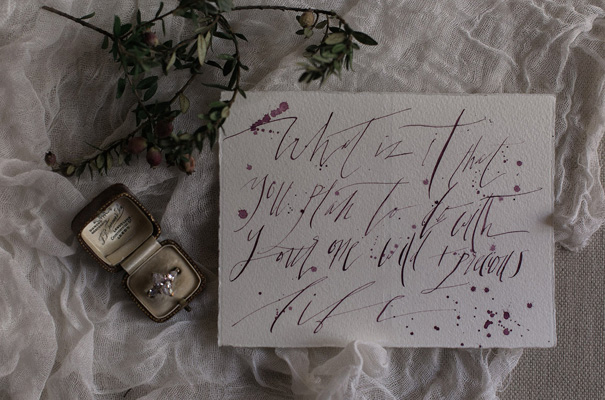 What is it that
you plan to do with
your one wild + precious
life